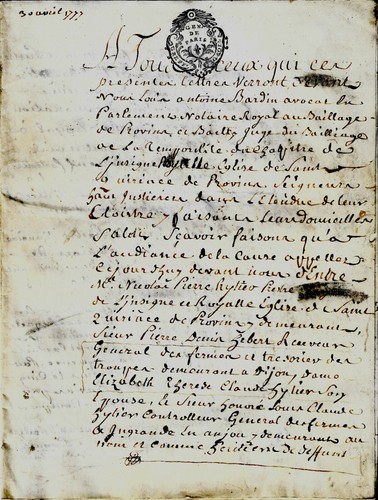 30 avril 1777
GEN DE PARIS
A Tous Ceux qui ces
presentes Lettres Verront
Nous Louis antoine Bardin avocat En
Parlement Notaire Royal au Baillage
de Provins, et Bailly Juge du Bailliage
de La Temporalité du Chapitre de
L'Insigne Eglise de Saint
Quiriace de Provins, Seigneurs
haut Justiciers dans L'Etendue de leur
Cloistre
Salut, Scavoir faisons qu'a
L'audiance de la Cause appellée
Cejourd'huy devant nous Entre
Me. Nicolas Pierre hylier
de L'Insigne et Royalle Eglise de Saint
Quiriace de Provins y demeurant,
Sieur Pierre Denis hebert Receveur
General des fermes et tresorier des
trouppes demeurant a Dijon, Dame
Elizabeth Therese Claude hylier Son
Epouse, et Sieur Honoré Louis Claude
hylier Controlleur General des fermes
a Ingrande En anjou y demeurant au
nom et comme heritiers de deffunt